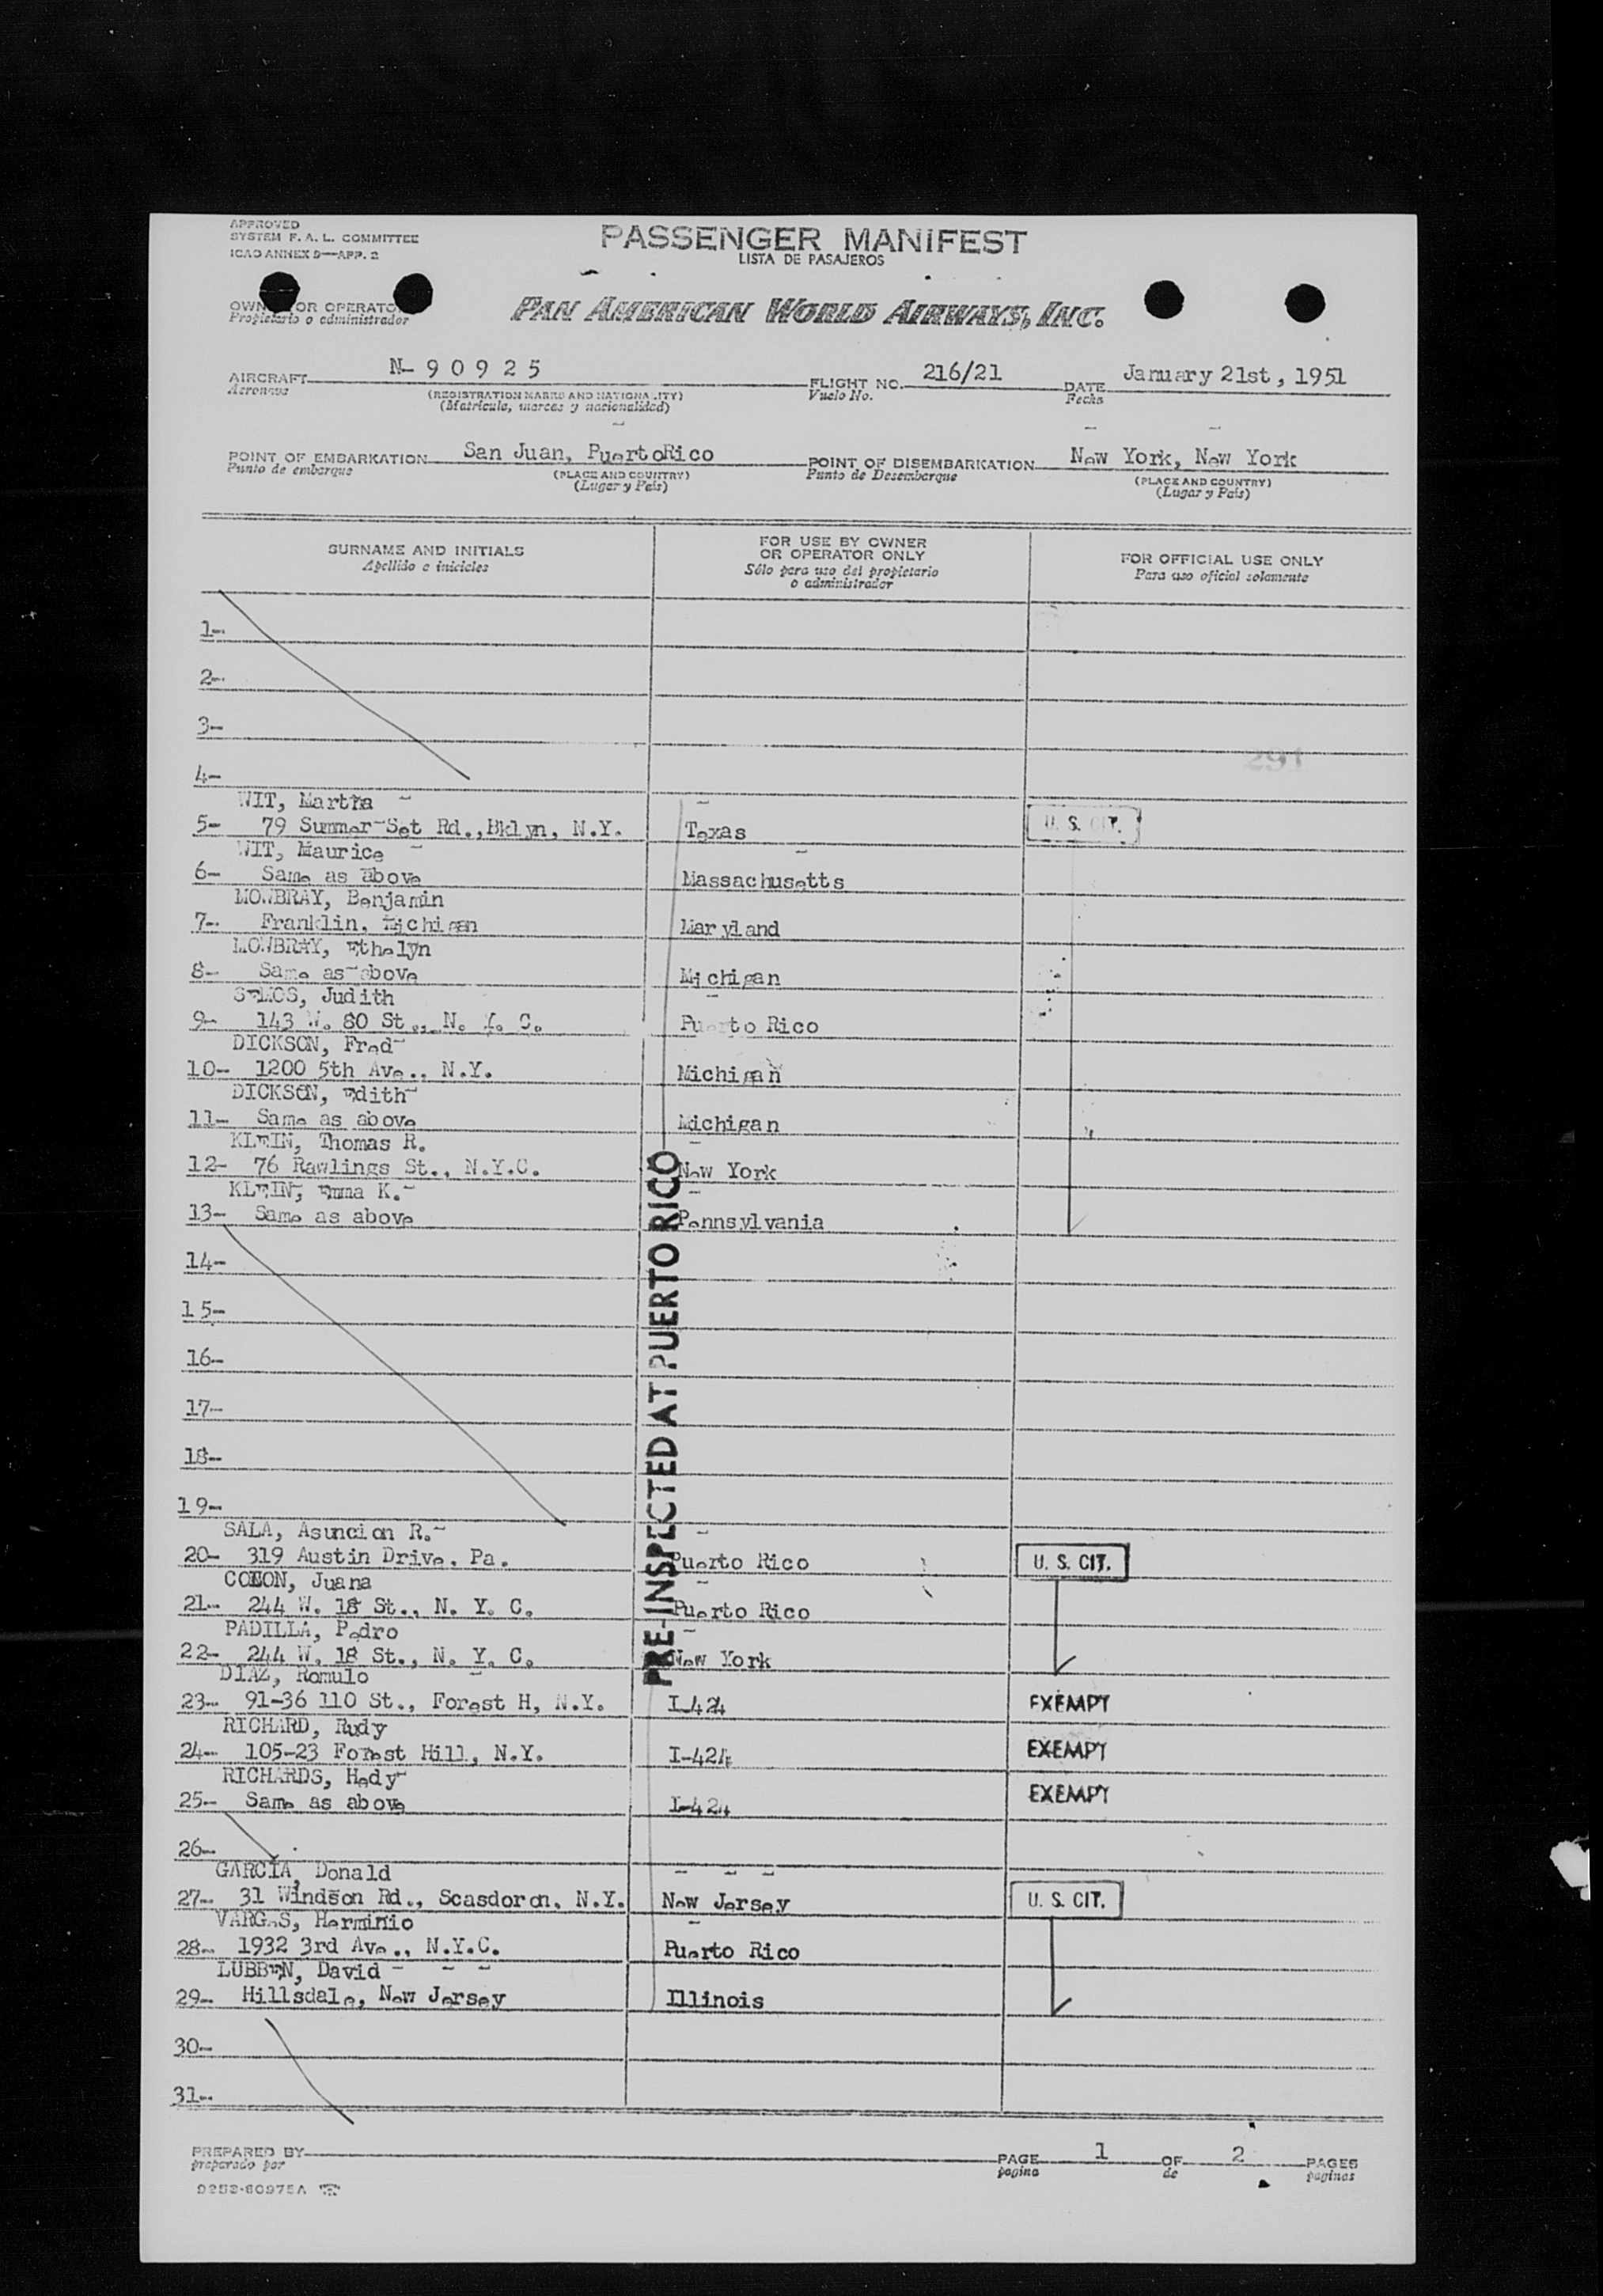 APPROVED
SYSTEM F. A. L. COMMITTEE
ICAO ANNEX 9—APP. 2
PASSENGER MANIFEST
LISTA DE PASAJEROS
OWN OR OPERATO
Propietario o administrador
PAN AMERICAN WORLD AIRWAYS, INC.
AIRCRAFT N-90925 FLIGHT NO. 216/21 DATE January 21st, 1951
Aeronave Vuelo No. Fecha
(REGISTRATION MARKS AND NATIONALITY)
(Matricula, marcas y nacionalidad)
POINT OF EMBARKATION San Juan, PuertoRico POINT OF DISEMBARKATION New York, New York
Punto de embarque Punto de Desembarque
(PLACE AND COUNTRY) (PLACE AND COUNTRY)
(Lugar y País) (Lugar y País)
SURNAME AND INITIALS
Apellido e iniciales
FOR USE BY OWNER
OR OPERATOR ONLY
Sólo para uso del propietario
o administrador
FOR OFFICIAL USE ONLY
Para uso oficial solamente
1-
2-
3-
291
4-
WIT, Martha
5- 79 Summer-Set Rd.,Bklyn, N.Y. Texas U. S. CIT.
WIT, Maurice
6- Same as above Massachusetts
MOWBRAY, Benjamin
7- Franklin, Michigan Maryland
MOWBRAY, Ethelyn
8- Same as above Michigan
Judith
9- 143 W. 80 St., N. Y. C. Puerto Rico
DICKSON, Fred
10- 1200 5th Ave., N.Y. Michigan
DICKSON, Edith
11- Same as above Michigan
KLEIN, Thomas R.
12- 76 Rawlings St., N.Y.C. New York
KLEIN, Emma K.
13- Same as above Pennsylvania
14-
15-
16-
17-
18-
19-
PRE-INSPECTED AT PUERTO RICO
SALA, Asuncion R.
20- 319 Austin Drive, Pa. Puerto Rico U. S. CIT.
Juana
21- 244 W. 18 St., N. Y. C. Puerto Rico
PADILLA, Pedro
22- 244 W. 18 St., N. Y. C. New York
DIAZ, Romulo
23- 91-36 110 St., Forest H, N.Y. I-424 EXEMPT
RICHARD, Rudy
24- 105-23 Forest Hill, N.Y. I-424 EXEMPT
RICHARDS, Hedy
25- Same as above I-424 EXEMPT
26-
GARCIA, Donald
27- 31 Windson Rd., Scasdoron, N.Y. New Jersey U. S. CIT.
VARGAS, Herminio
28- 1932 3rd Ave., N.Y.C. Puerto Rico
LUBBEN, David
29- Hillsdale, New Jersey Illinois
30-
31-
PREPARED BY PAGE 1 OF 2 PAGES
preparado por pagina de paginas
9252-60975A